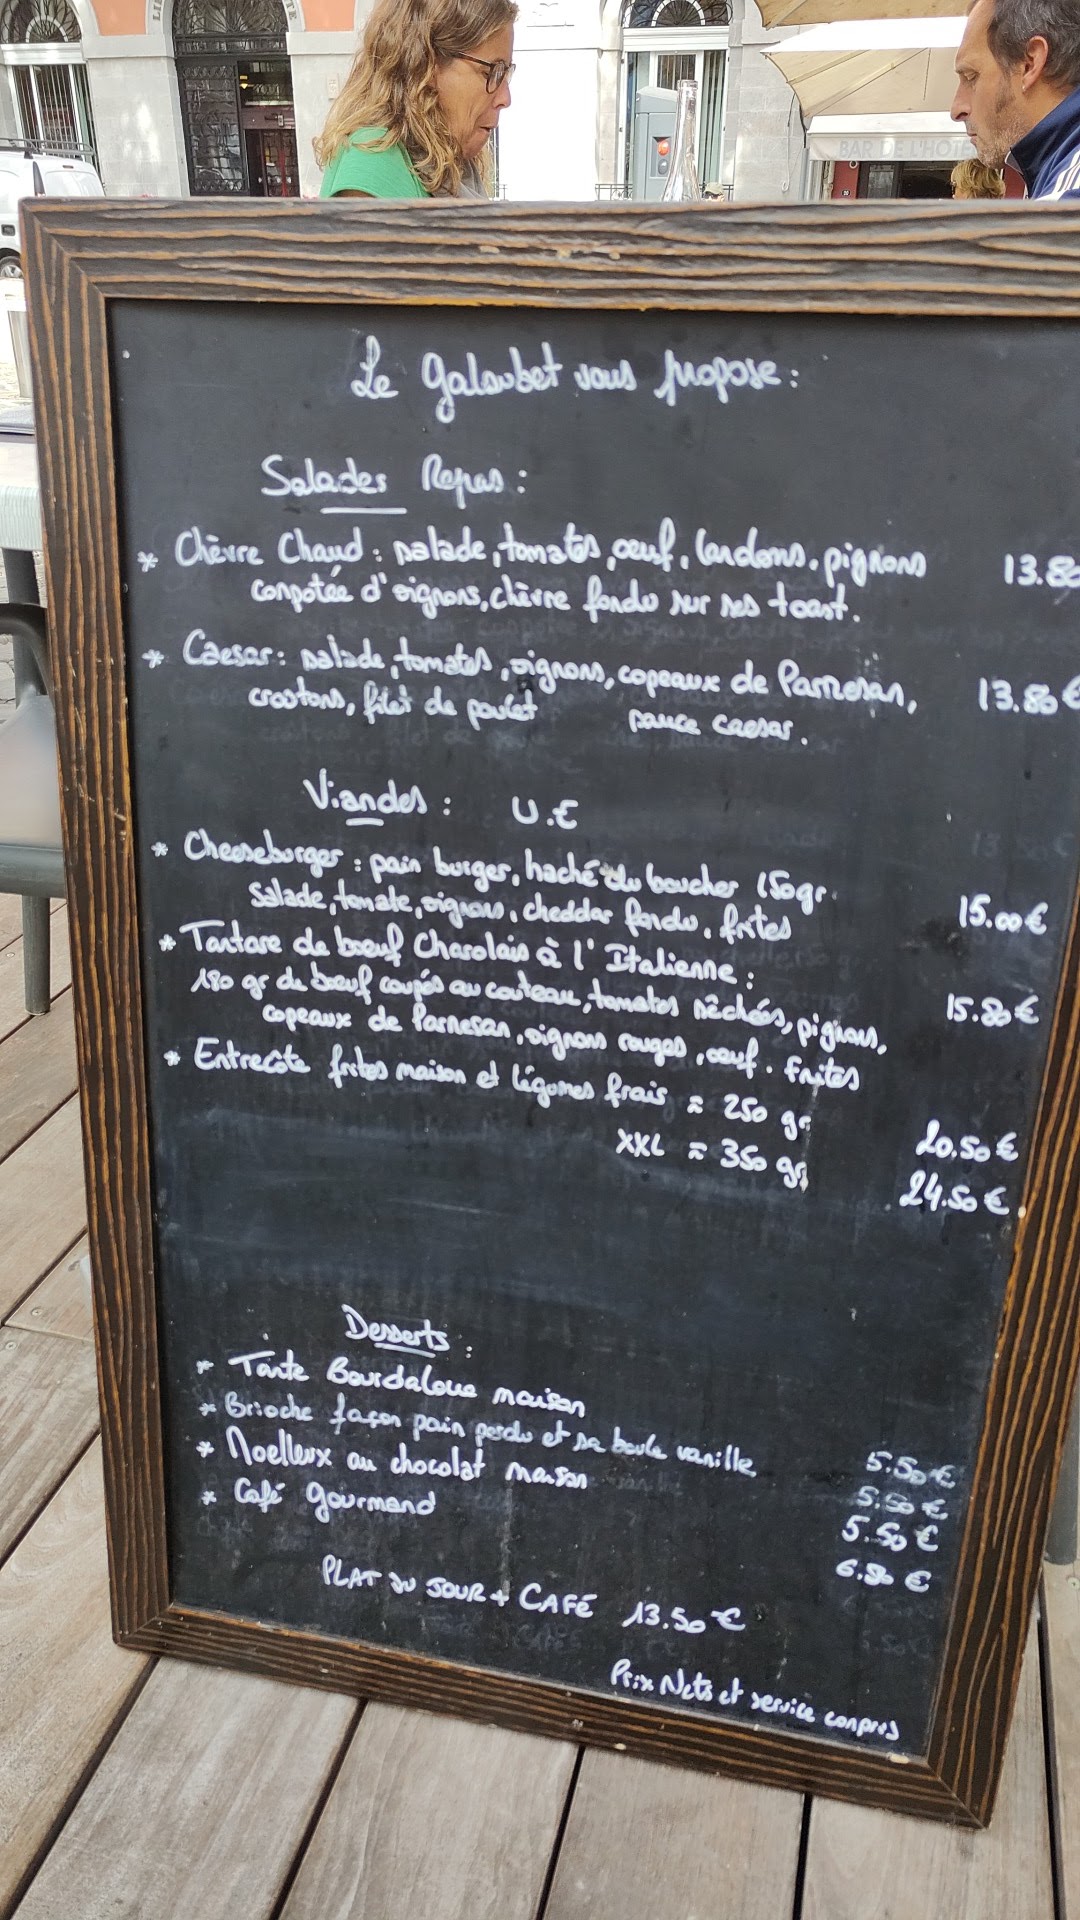 BAR DE L'HÔTE
Le Galoubet vous propose :
Salades Repas :
* Chèvre Chaud : salade, tomates, œuf, lardons, pignons 13.80
compotée d'oignons, chèvre fondu sur ses toast.
* Caesar : salade, tomates, oignons, copeaux de Parmesan, 13.80 €
croutons, filet de poulet sauce caesar.
Viandes : U.E
* Cheeseburger : pain burger, haché du boucher 150gr.
Salade, tomate, oignons, cheddar fondu, frites 15.00 €
* Tartare de bœuf Charolais à l'Italienne :
180 gr de bœuf coupés au couteau, tomates séchées, pignons, 15.80 €
copeaux de Parmesan, oignons rouges, œuf. Frites
* Entrecôte frites maison et légumes frais ≈ 250 gr 20.50 €
XXL ≈ 350 gr 24.50 €
Desserts :
* Tarte Bourdaloue maison 5.50 €
* Brioche façon pain perdu et sa boule vanille 5.50 €
* Moelleux au chocolat maison 5.50 €
* Café Gourmand 6.80 €
PLAT DU JOUR + CAFÉ 13.50 €
Prix Nets et service compris